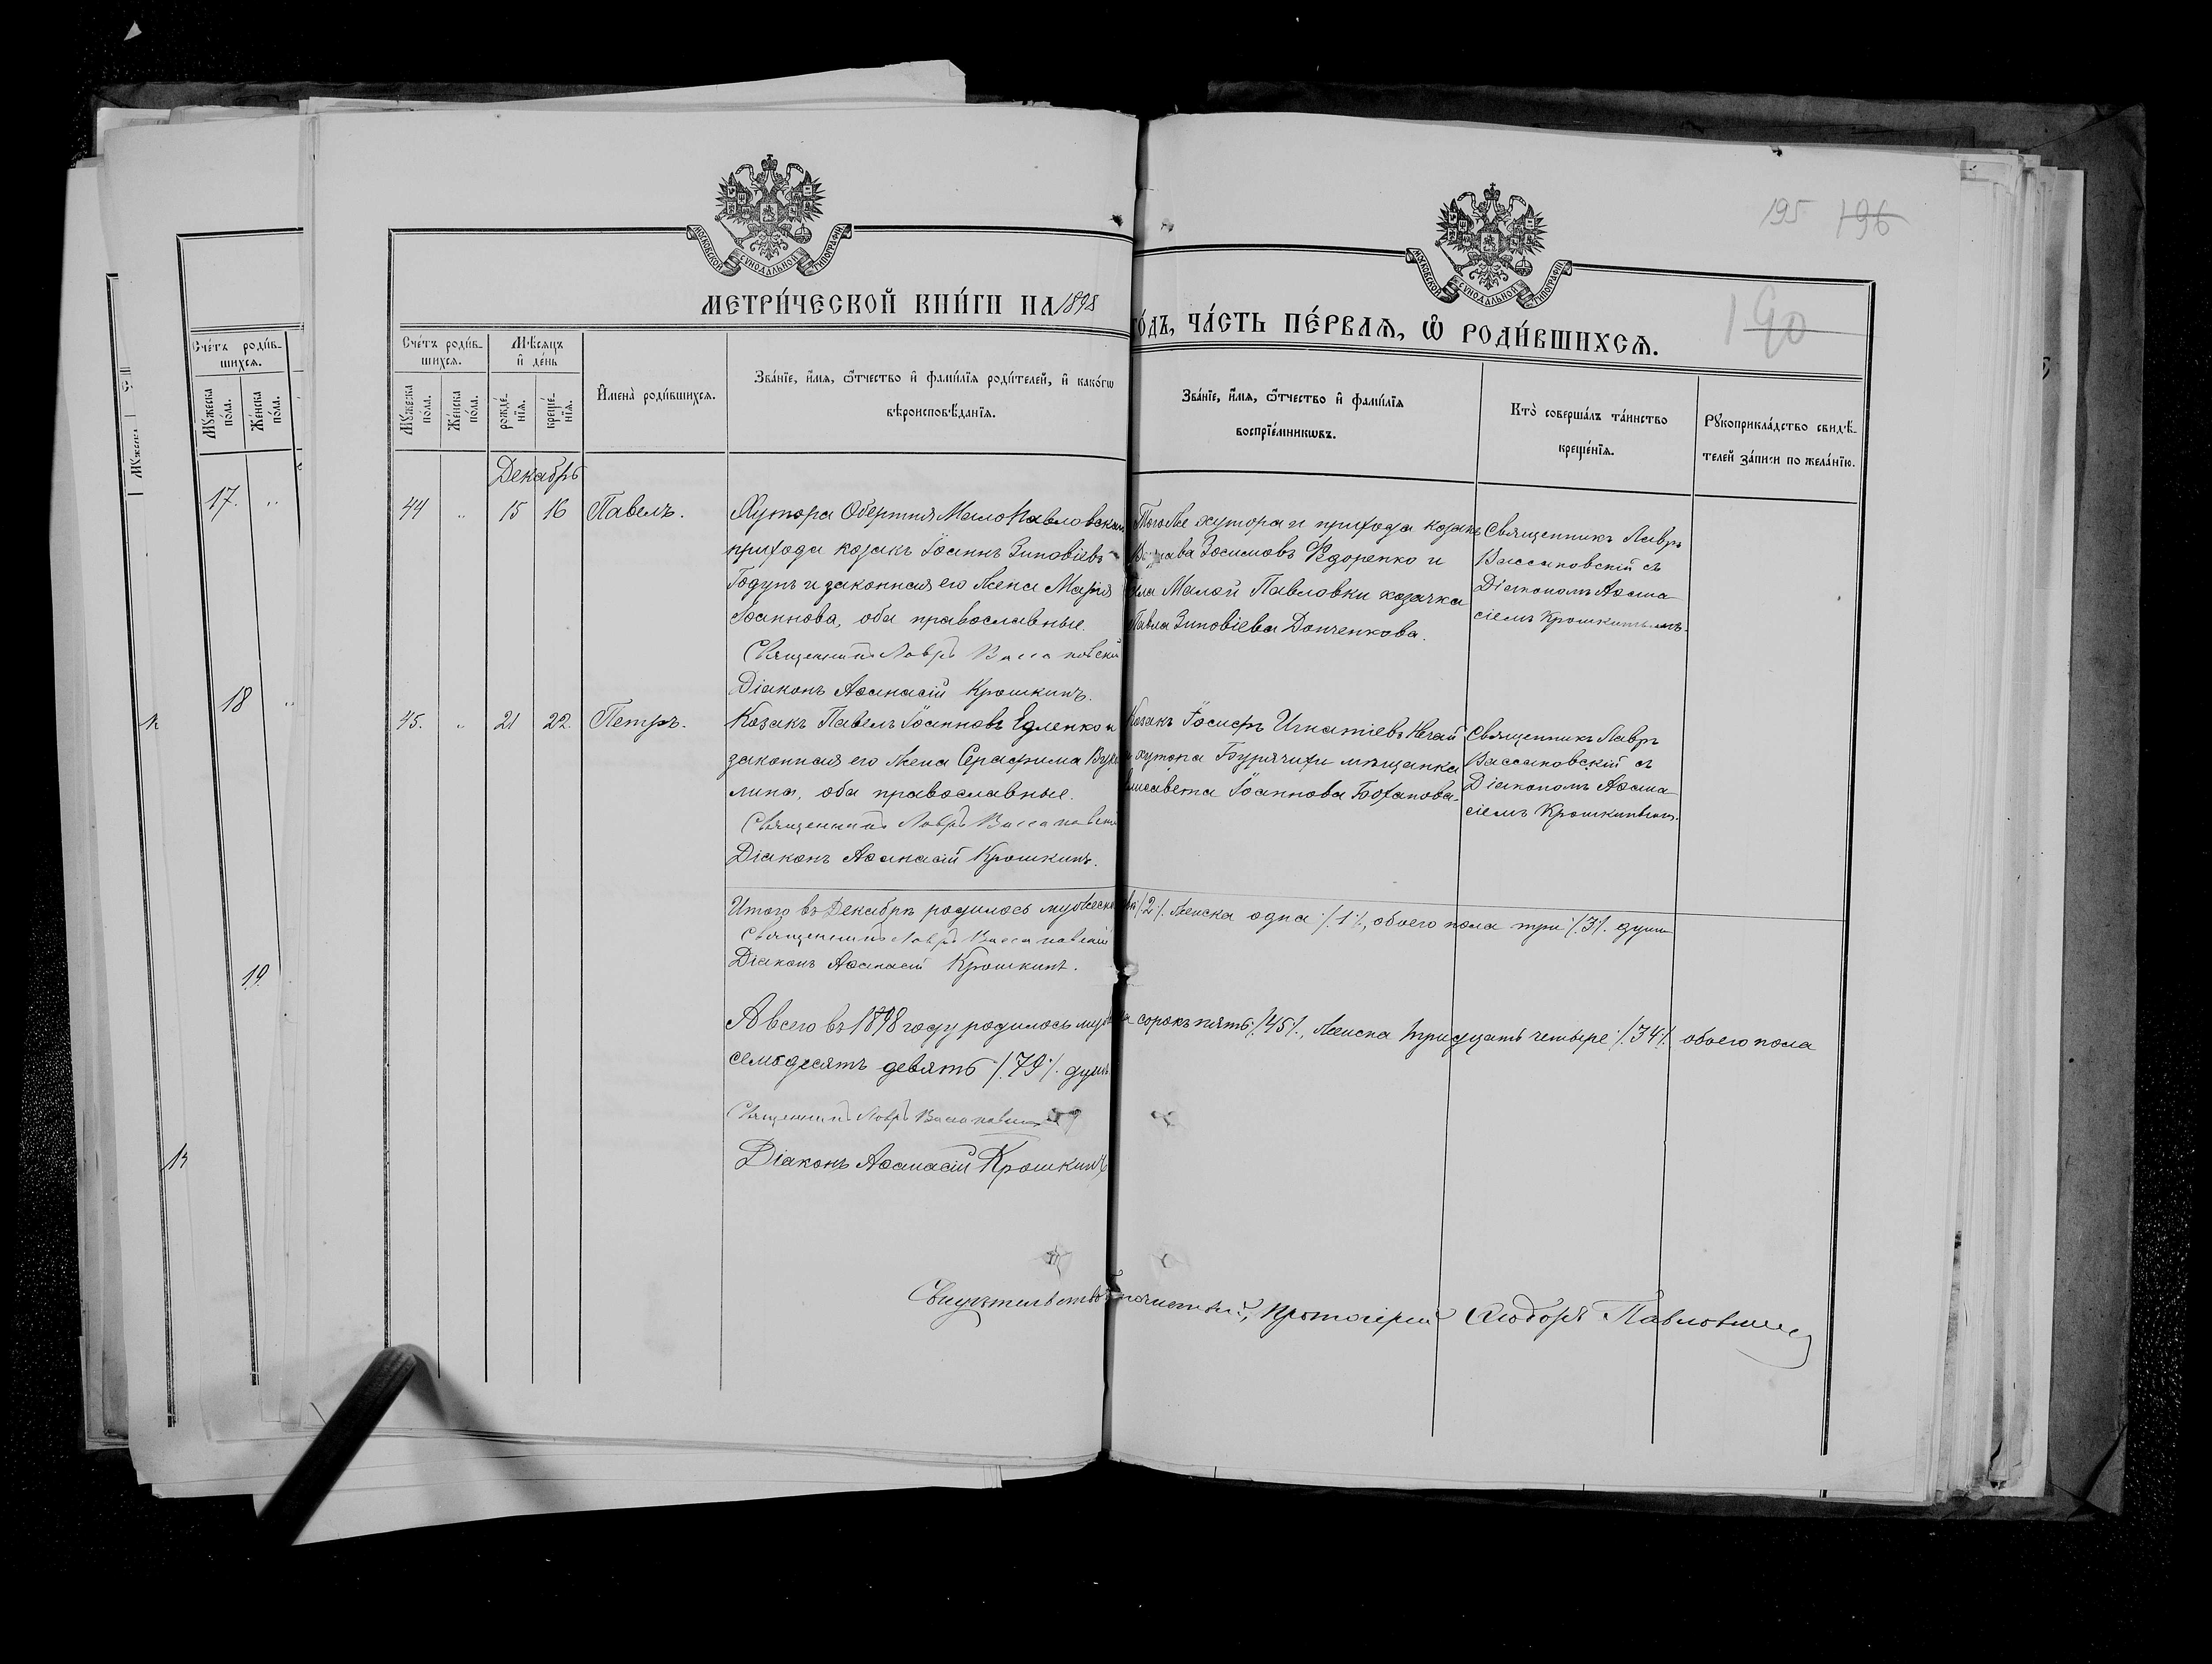 195 196
190
МОСКОВСКОЙ СѴНОДАЛЬНОЙ ТИПОГРАФІИ
МОСКОВСКОЙ СѴНОДАЛЬНОЙ ТИПОГРАФІИ
МЕТРИ́ЧЕСКОЙ КНИ́ГИ НА 1898
ГО́ДЪ, ЧА́СТЬ ПЕ́РВАѦ, Ѡ҆ РОДИ́ВШИХСѦ.
Сче́тъ роди́в-
шихся.
Мꙋ́жеска
по́ла.
Же́нска
по́ла.
Мѣ́сяцъ
и҆ де́нь
рожде́-
нїѧ.
креще́-
нїѧ.
И҆мена̀ роди́вшихся.
Зва́нїе, и҆́мя, ѻ҆́тчество и҆ фами́лїя роди́телей, и҆ како́гѡ
вѣроисповѣ́данїя.
Зва́нїе, и҆́мя, ѻ҆́тчество и҆ фами́лїя
воспрїе́мникѡвъ.
Кто̀ соверша́лъ та́инство
креще́нїя.
Рꙋкоприкла́дство свидѣ́-
телей за́писи по жела́нїю.
Сче́тъ роди́в-
шихся.
Мꙋ́жеска
по́ла.
Же́нска
по́ла.
17.
18
19.
Декабрь
44 " 15 16 Павелъ.
Хутора Обертня Мало Павловскаго
прихода козакъ Іоаннъ Зиновіевъ
Годунъ и законная его жена Марія
Іоаннова, оба православные.
Священникъ Лавръ Вассановскій
Діаконъ Аѳанасій Крошкинъ.
Того же хутора и прихода козакъ
Зосимовъ Ѳедоренко и
Малой Павловки козачка
Зиновіева Донченкова.
Священникъ Лавръ
Вассановскій съ
Діакономъ Аѳана-
сіемъ Крошкинымъ.
45. " 21 22. Петръ.
Козакъ Павелъ Іоанновъ Едленко и
законная его жена Серафима Вуко-
лина, оба православные.
Священникъ Лавръ Вассановскій
Діаконъ Аѳанасій Крошкинъ.
Козакъ Іосифъ Игнатіевъ Нечай
и хутора мѣщанка
Елисавета Іоаннова
Священникъ Лавръ
Вассановскій съ
Діакономъ Аѳана-
сіемъ Крошкинымъ.
Итого въ Декабрѣ родилось мужеска два /.2./. женска одна /.1./., обоего пола три /.3./. души
Священникъ Лавръ Вассановскій
Діаконъ Аѳанасій Крошкинъ.
А всего въ 1898 году родилось мужеска сорокъ пять /.45./., женска тридцать четыре /.34./. обоего пола
семьдесятъ девять /.79./. душъ.
Священникъ Лавръ Вассановскій
Діаконъ Аѳанасій Крошкинъ
Протоіерей Ѳеодоръ